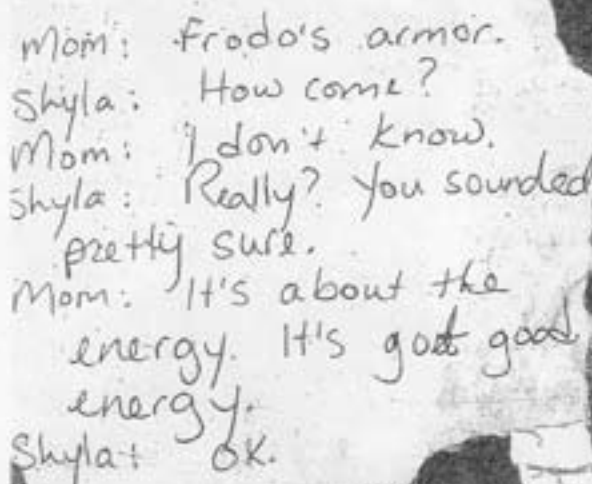 Mom: Frodo's armor.
Shyla: How come?
Mom: I don't know.
Shyla: Really? You sounded
pretty sure.
Mom: It's about the
energy. It's got good
energy.
Shyla: OK.